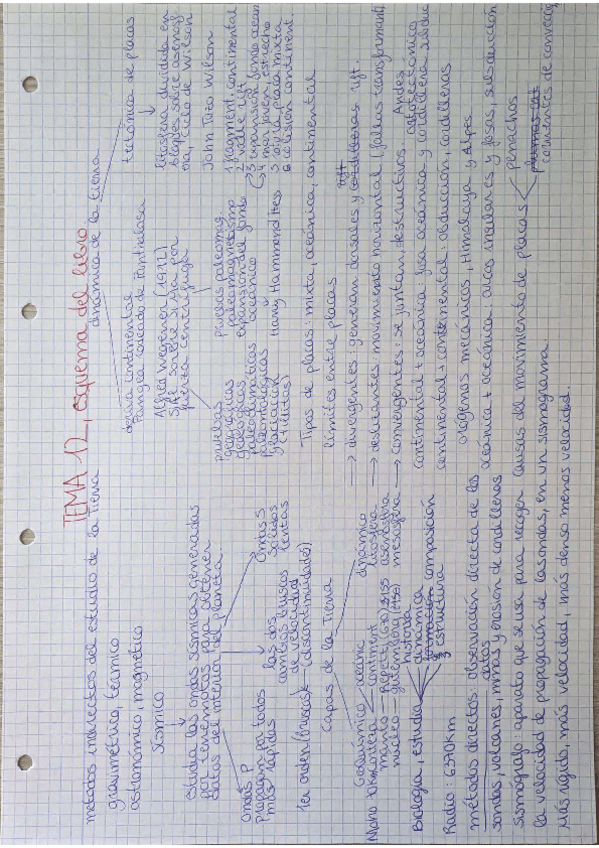 TEMA 12, esquema del libro
métodos indirectos del estudio de la Tierra
gravimétrico, térmico
astronómico, magnético
sísmico
estudia las ondas sísmicas generadas
por terremotos para obtener
datos del interior del planeta
Ondas P
Propagan por todos
más rápidas
las dos
cambios bruscos
de velocidad
(discontinuidades)
Ondas S
sólidos
lentas
1er orden (bruscas)
Capas de la Tierra
Geoquímico
corteza oceánic
continent
manto
núcleo
dinámico
litosfera
astenosfera
mesosfera
estudia
historia
dinámica
composición
y estructura
Radio: 6370km
métodos directos: observación directa de los
datos
sondas, volcanes, minas y erosión de cordilleras
Sismógrafo: aparato que se usa para recoger
la velocidad de propagación de las ondas, en un sismograma
Más rígido, más velocidad, más denso menos velocidad.
dinámica de la tierra
deriva continental
Pangea rodeado de Panthalasa
Alfred Wegener (1912)
fuerza centrífuga
pruebas
geográficas
geológicas
paleoclimáticas
paleontológicas
glaciación
(tillitas)
Pruebas paleomag.
paleomagnetismo
expansión del fondo
oceánico
Harry Hammond Hes
tectónica de placas
litosfera dividida en
placas sobre astenosf
ciclo de Wilson
John Tuzo Wilson
1 fragment. continental
2 valle rift
3 expansión fondo ocean
4 mar joven, estrecho
6 colisión continent
Tipos de placas: mixta, oceánica, continental
límites entre placas
→ divergentes: generan dorsales y rift
→ deslizantes: movimiento horizontal (fallas transformant)
→ convergentes: se juntan. destructivos.
Andes
continental + oceánica: fosa oceánica y cordillera subduc
continental + continental: obducción, cordilleras
orógenos mecánicos, Himalaya y Alpes
oceánica + oceánica: arcos insulares y fosas, subducción
causas del movimiento de placas
penachos
corrientes de convecc